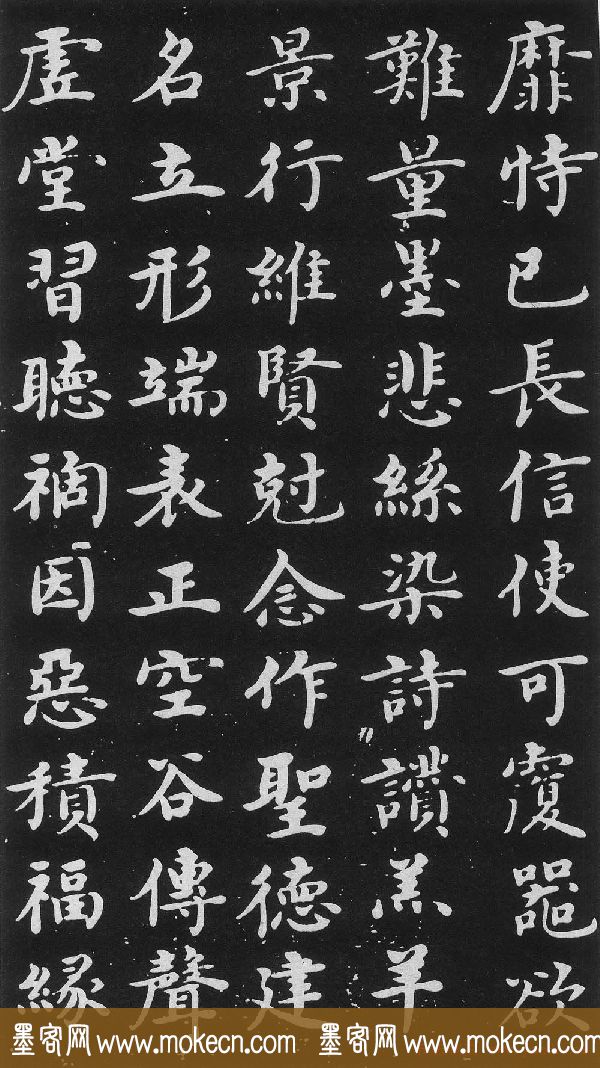 靡恃已長信使可覆器欲
難量墨悲絲染詩讚羔羊
景行維賢尅念作聖德建
名立形端表正空谷傳聲
虛堂習聽禍因惡積福緣
墨客网 www.mokecn.com 墨客网 www.mokecn.com